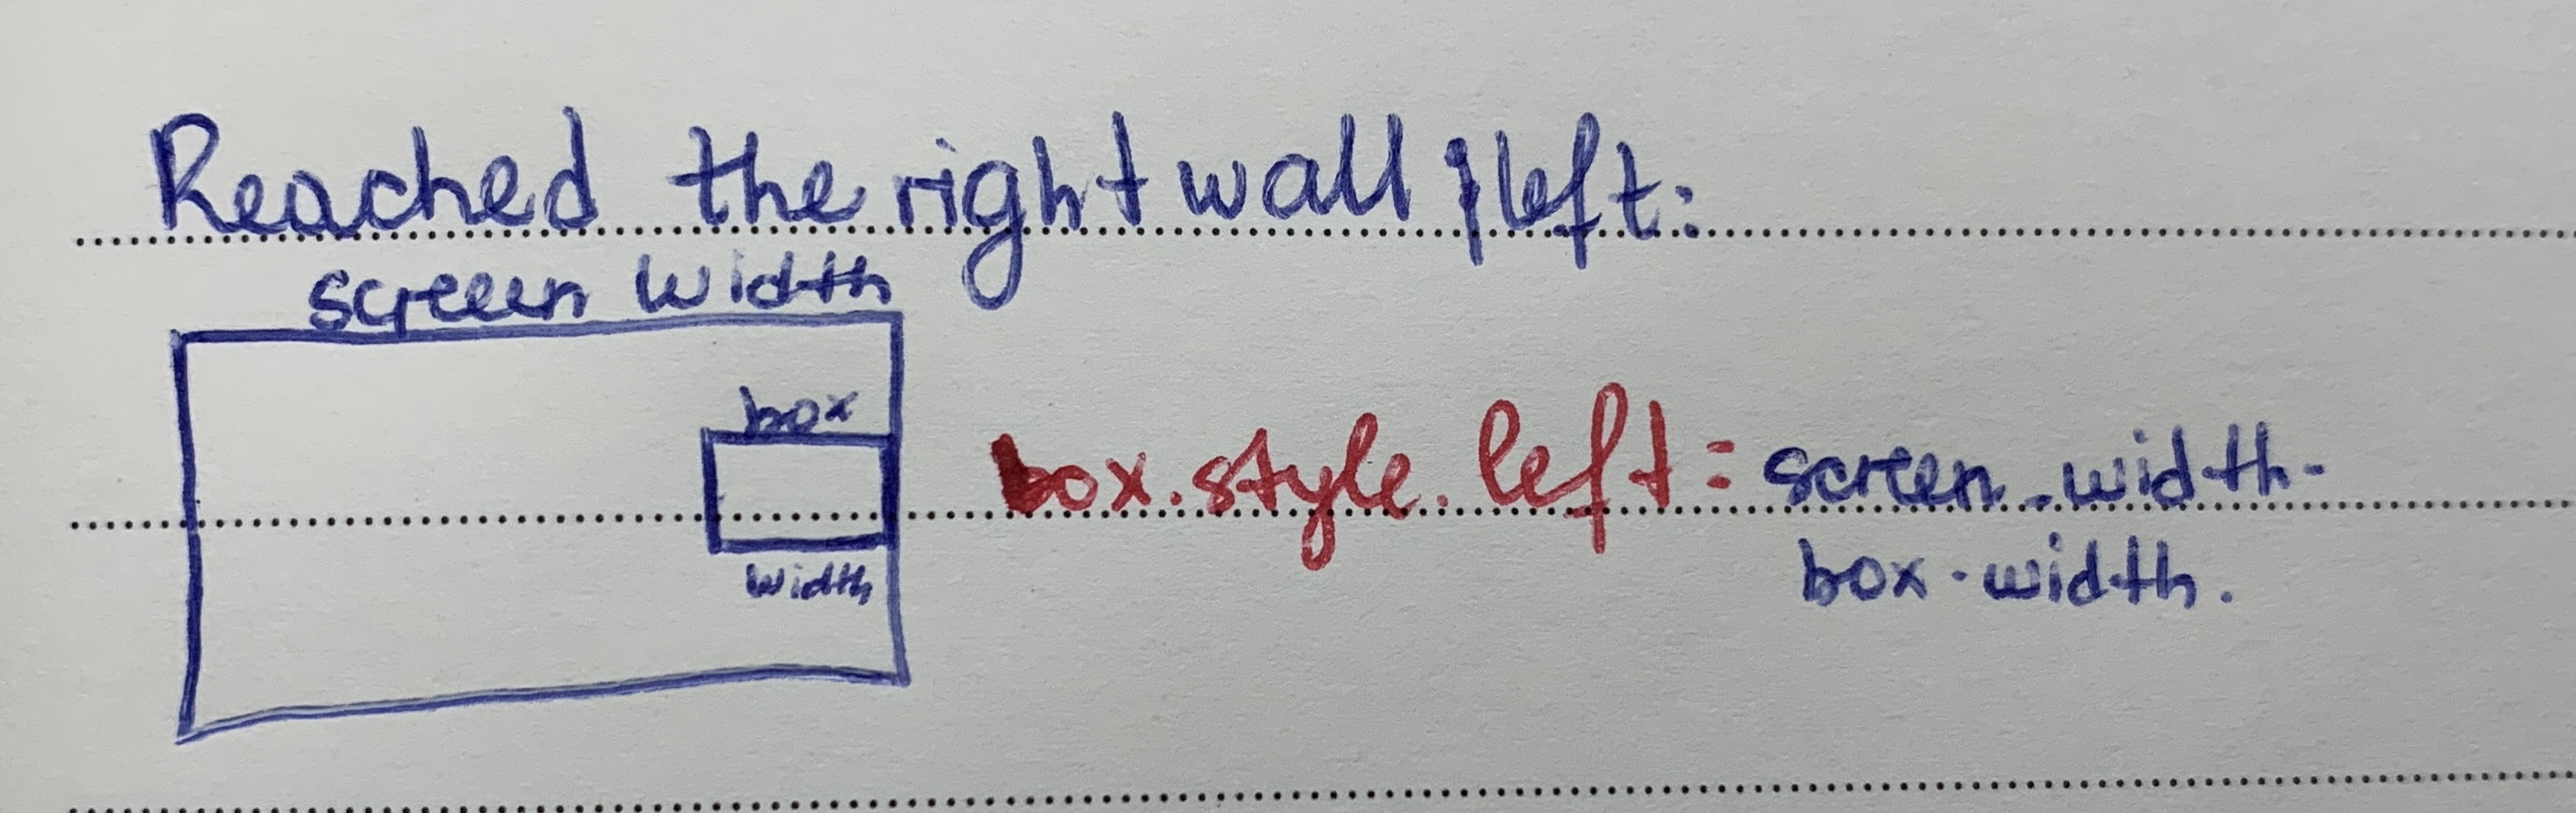 Reached the right wall left:
screen width
box
box.style.left = screen.width-
box.width.
width